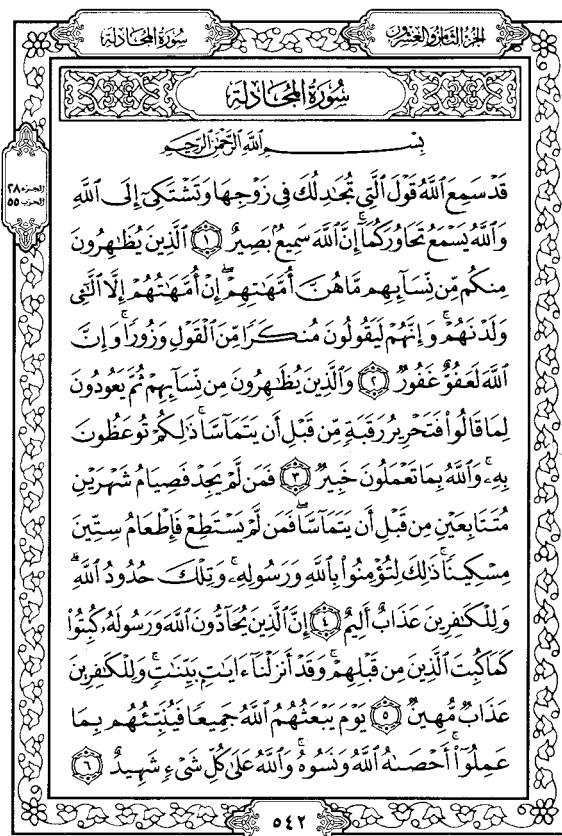 سُورَةُ المُجَادلة
الجُزءُ الثَّامِنُ وَالعِشرُونَ
سُورَةُ المُجَادلة
الجزء ٢٨
الحزب ٥٥
بِسۡمِ ٱللَّهِ ٱلرَّحۡمَٰنِ ٱلرَّحِيمِ
قَدۡ سَمِعَ ٱللَّهُ قَوۡلَ ٱلَّتِي تُجَٰدِلُكَ فِي زَوۡجِهَا وَتَشۡتَكِيٓ إِلَى ٱللَّهِ
وَٱللَّهُ يَسۡمَعُ تَحَاوُرَكُمَآۚ إِنَّ ٱللَّهَ سَمِيعُۢ بَصِيرٌ ١ ٱلَّذِينَ يُظَٰهِرُونَ
مِنكُم مِّن نِّسَآئِهِم مَّا هُنَّ أُمَّهَٰتِهِمۡۖ إِنۡ أُمَّهَٰتُهُمۡ إِلَّا ٱلَّٰٓـِٔي
وَلَدۡنَهُمۡۚ وَإِنَّهُمۡ لَيَقُولُونَ مُنكَرٗا مِّنَ ٱلۡقَوۡلِ وَزُورٗاۚ وَإِنَّ
ٱللَّهَ لَعَفُوٌّ غَفُورٞ ٢ وَٱلَّذِينَ يُظَٰهِرُونَ مِن نِّسَآئِهِمۡ ثُمَّ يَعُودُونَ
لِمَا قَالُواْ فَتَحۡرِيرُ رَقَبَةٖ مِّن قَبۡلِ أَن يَتَمَآسَّاۚ ذَٰلِكُمۡ تُوعَظُونَ
بِهِۦۚ وَٱللَّهُ بِمَا تَعۡمَلُونَ خَبِيرٞ ٣ فَمَن لَّمۡ يَجِدۡ فَصِيَامُ شَهۡرَيۡنِ
مُتَتَابِعَيۡنِ مِن قَبۡلِ أَن يَتَمَآسَّاۖ فَمَن لَّمۡ يَسۡتَطِعۡ فَإِطۡعَامُ سِتِّينَ
مِسۡكِينٗاۚ ذَٰلِكَ لِتُؤۡمِنُواْ بِٱللَّهِ وَرَسُولِهِۦۚ وَتِلۡكَ حُدُودُ ٱللَّهِۗ
وَلِلۡكَٰفِرِينَ عَذَابٌ أَلِيمٌ ٤ إِنَّ ٱلَّذِينَ يُحَآدُّونَ ٱللَّهَ وَرَسُولَهُۥ كُبِتُواْ
كَمَا كُبِتَ ٱلَّذِينَ مِن قَبۡلِهِمۡۚ وَقَدۡ أَنزَلۡنَآ ءَايَٰتِۭ بَيِّنَٰتٖۚ وَلِلۡكَٰفِرِينَ
عَذَابٞ مُّهِينٞ ٥ يَوۡمَ يَبۡعَثُهُمُ ٱللَّهُ جَمِيعٗا فَيُنَبِّئُهُم بِمَا
عَمِلُوٓاْۚ أَحۡصَىٰهُ ٱللَّهُ وَنَسُوهُۚ وَٱللَّهُ عَلَىٰ كُلِّ شَيۡءٖ شَهِيدٌ ٦
٥٤٢